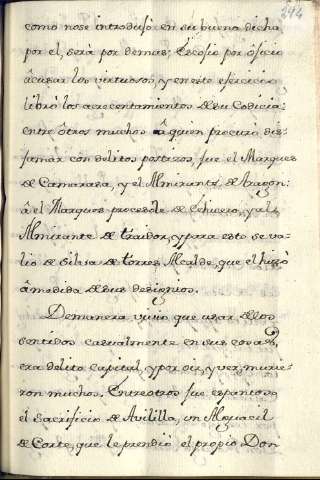 244
como nose introdusó en su buena dicha
por el, será por demas; Escosio por ôficio
âcusar los virtuosos, y en este exercicio
libró los acrecentamientos de su Codicia:
entre ôtros muchos â quien procuró dis-
famar con delitos postizos, fue el Marques
de Camarasa, y el Almirante de Aragon:
â el Marques procesole de Echicero, y al
Almirante de traidor, y para esto se va-
lio de Silva de Torres Alcalde, que el hizo
âmedida de sus designios.
Demanera vivio que usar de los
sentidos casualmente en sus cosas,
era delito capital, y por oir, y ver, murie-
ron muchos. Entreotros fue espantoso
el Sacrificio de Avililla, un Alguacil
de Corte, que le prendió el propio Don